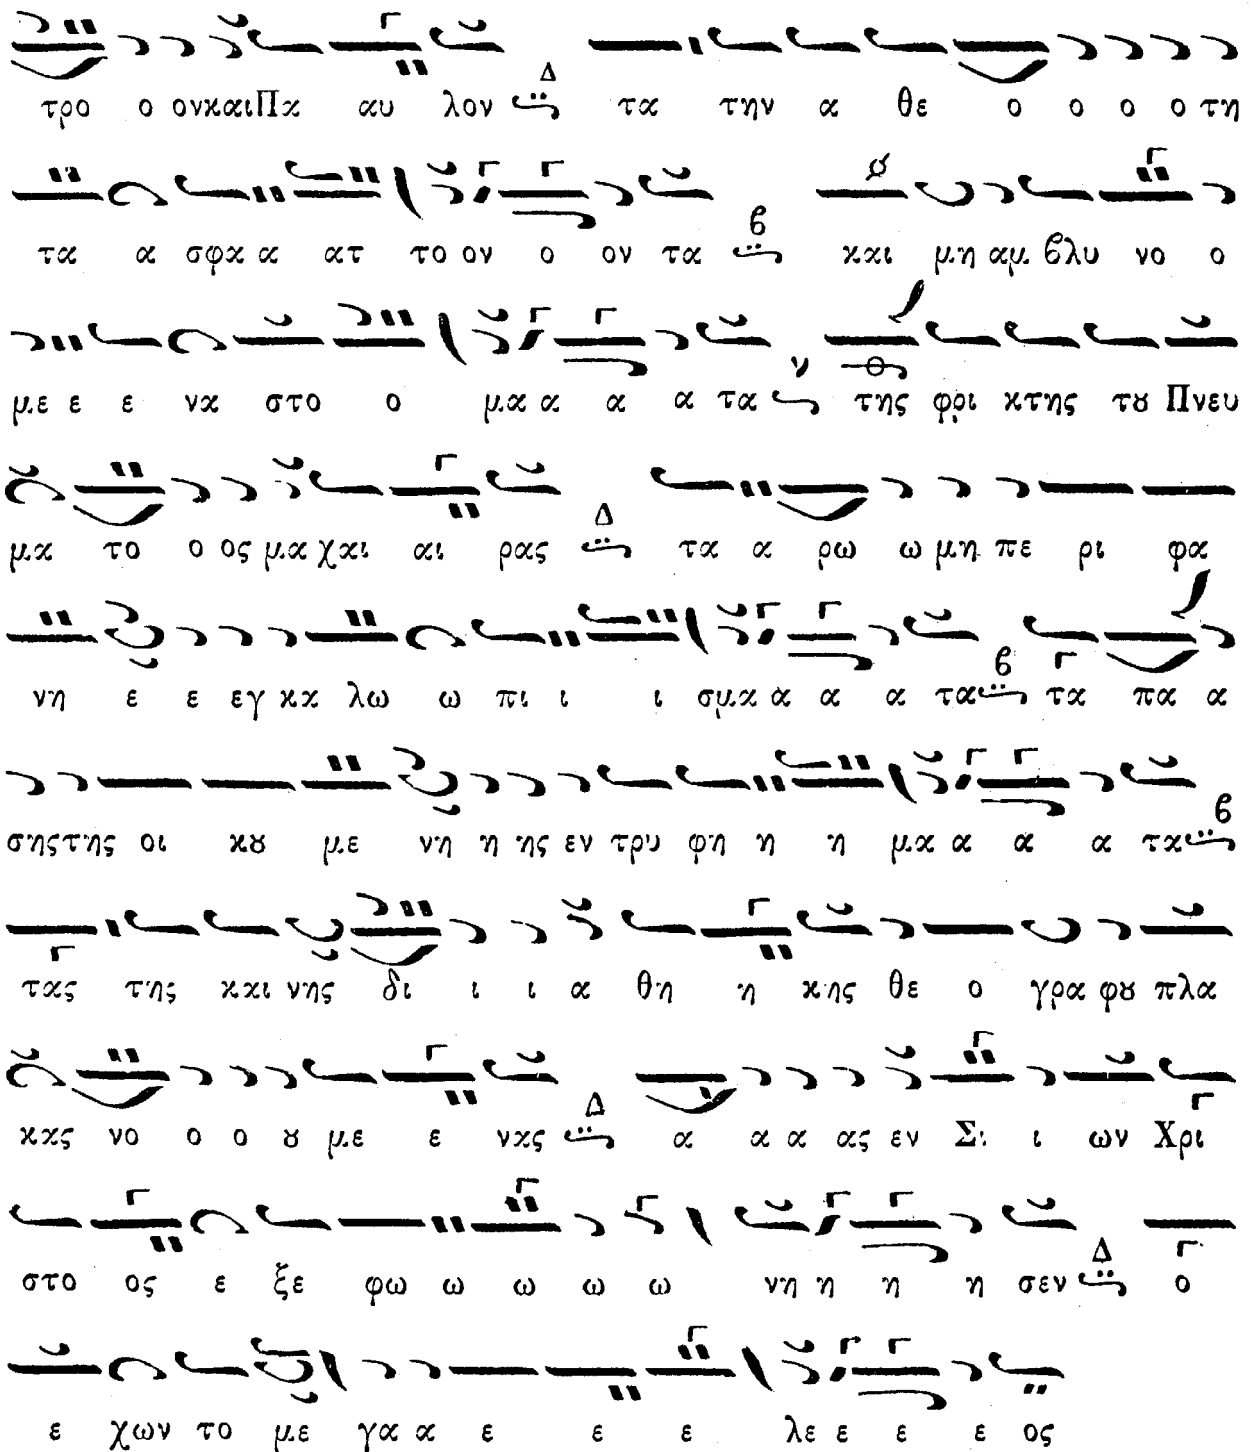 τρο ο ονκαιΠα αυ λον Δ τα την α θε ο ο ο ο τη
τα α σφα α ατ το ον ο ον τα β και μη αμ βλυ νο ο
με ε ε να στο ο μα α α α τα ν της φρι κτης τȣ Πνευ
μα το ο ος μα χαι αι ρας Δ τα α ρω ω μη πε ρι φα
νη ε ε εγ κα λω ω πι ι ι σμα α α α τα β τα πα α
σης της οι κȣ με νη η ης εν τρυ φη η η μα α α α τα β
τας της και νης δι ι ι α θη η κης θε ο γρα φȣ πλα
κας νο ο ο ȣ με ε νας Δ α α α ας εν Σι ι ων Χρι
στο ος ε ξε φω ω ω ω ω νη η η η σεν Δ ο
ε χων το με γα α ε ε ε λε ε ε ε ος